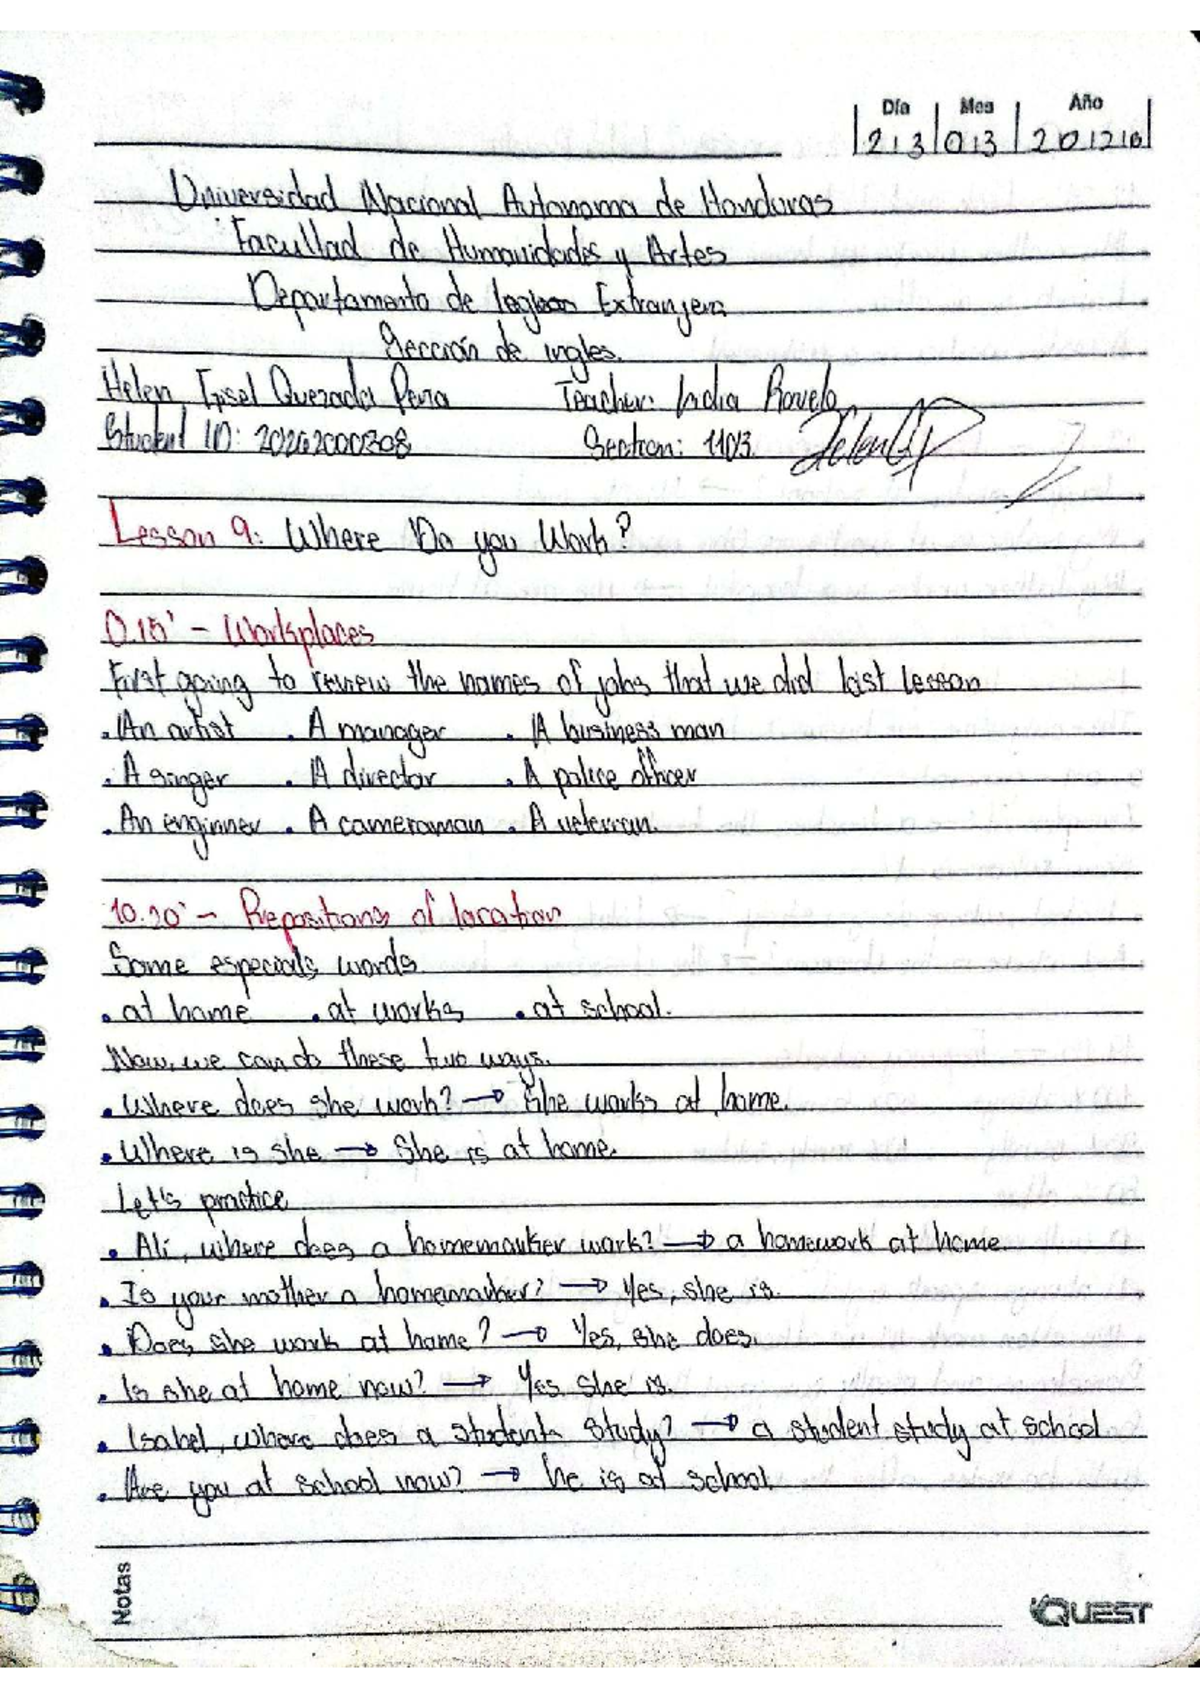 Día Mes Año
23 03 2026
Universidad Nacional Autonoma de Honduras
Facultad de Humanidades y Artes
Departamento de Extranjera
Sección de ingles.
Helen Gisel Quezada Pena Teacher: India Rovelo
Student ID: 20262000308 Section: 1103.
Lesson 9: Where Do you Work?
0.15' - Workplaces
First going to review the names of jobs that we did last lesson
. An artist . A manager . A business man
. A singer . A director . A police officer
. An enginner . A cameraman . A veterran.
10.20' - Prepositions of location
Some especials words.
. at home . at works . at school.
Now, we can do these two ways.
. Where does she work? → She works at home.
. Where is she → She is at home.
Let's practice
. Ali, where does a homemarker work? → a homework at home.
. Is your mother a homemarker? → Yes, she is.
. Does she work at home? → Yes, she does.
. Is she at home now? → Yes she is.
. Isabel, where does a students study? → a student study at school
. Are you at school now? → he is at school.
Notas
QUEST